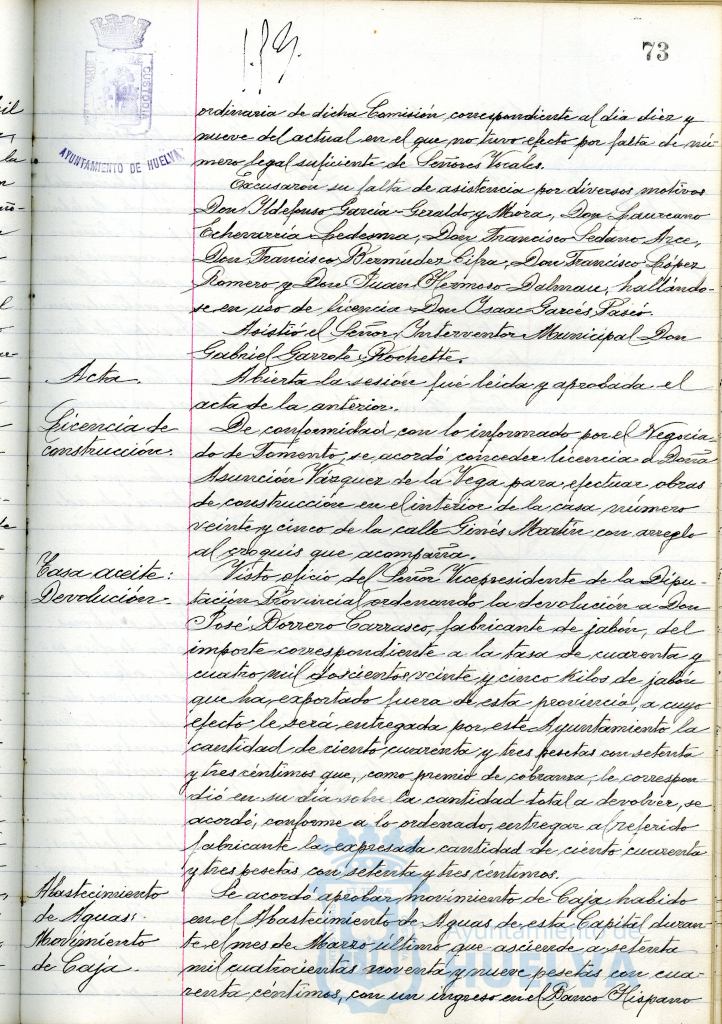 73
AYUNTAMIENTO DE HUELVA
CUSTODIA
ordinaria de dicha Comisión correspondiente al dia diez y
nueve del actual en el que no tuvo efecto por falta de nú-
mero legal suficiente de Señores Vocales.
Excusaron su falta de asistencia por diversos motivos
Don Ildefonso García-Geraldo y Mora, Don Laureano
Echevarría Ledesma, Don Francisco Sedano Arce,
Don Francisco Bermudez Cifra, Don Francisco López
Romero y Don Juan Hermoso Dalmau, hallándo-
se en uso de licencia Don Isaac Garcés Pascó.
Asistió el Señor Interventor Municipal Don
Gabriel Garrote Rochette.
Acta.
Abierta la sesión fué leida y aprobada el
acta de la anterior.
Licencia de
construcción.
De conformidad con lo informado por el Negocia-
do de Fomento, se acordó conceder licencia a Doña
Asunción Vázquez de la Vega para efectuar obras
de construcción en el interior de la casa número
veinte y cinco de la calle Ginés Martín con arreglo
al croquis que acompaña.
Tasa aceite:
Devolución.
Visto oficio del Señor Vicepresidente de la Dipu-
tación Provincial ordenando la devolución a Don
José Borrero Carrasco, fabricante de jabón, del
importe correspondiente a la tasa de cuarenta y
cuatro mil doscientos veinte y cinco kilos de jabón
que ha exportado fuera de esta provincia, a cuyo
efecto le será entregada por este Ayuntamiento la
cantidad de ciento cuarenta y tres pesetas con setenta
y tres céntimos que, como premio de cobranza, le correspon-
dió en su dia sobre la cantidad total a devolver, se
acordó, conforme a lo ordenado, entregar al referido
fabricante la expresada cantidad de ciento cuarenta
y tres pesetas con setenta y tres céntimos.
Abastecimiento
de Aguas:
Movimiento
de Caja.
Se acordó aprobar movimiento de Caja habido
en el Abastecimiento de Aguas de esta Capital duran-
te el mes de Marzo último que asciende a setenta
mil cuatrocientas noventa y nueve pesetas con cua-
renta céntimos, con un ingreso en el Banco Hispano
Ayuntamiento de
HUELVA